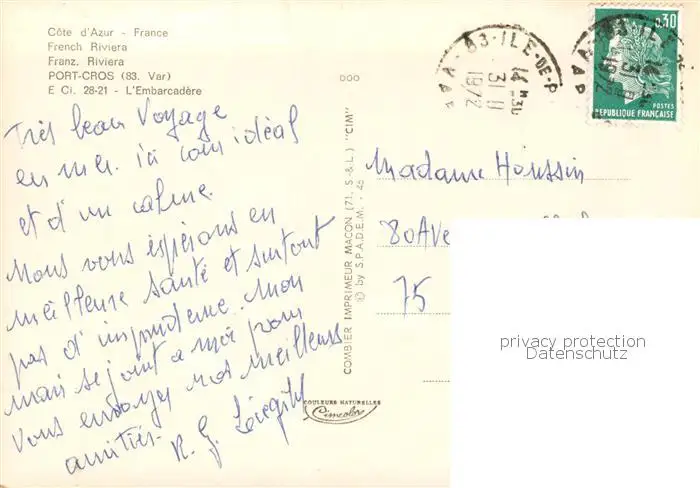 Côte d'Azur - France
French Riviera
Franz. Riviera
PORT-CROS (83. Var)
E Ci. 28-21 - L'Embarcadère
Très beau Voyage
en mer. ici coin idéal
et d'un calme.
Nous vous espérons en
meilleure santé et surtout
pas d'imprudence. Mon
mari se joint a moi pour
vous envoyer nos meilleures
amitiés.
R. G.
COMBIER IMPRIMEUR MACON (71, S.-& L.) "CIM"
© by S.P.A.D.E.M. - 45
COULEURS NATURELLES
Cimcolor
83-ILE-DE-P
14 H 30
31
1972
0,30
POSTES
REPUBLIQUE FRANÇAISE
Madame Houssin
80 Ave
75
privacy protection
Datenschutz